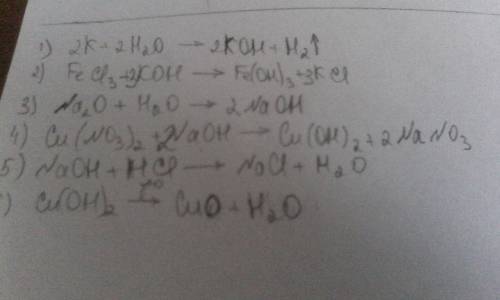 1) 2K + 2H₂O → 2KOH + H₂↑
2) FeCl₃ + 3KOH → Fe(OH)₃ + 3KCl
3) Na₂O + H₂O → 2NaOH
4) Cu(NO₃)₂ + 2NaOH → Cu(OH)₂ + 2NaNO₃
5) NaOH + HCl → NaCl + H₂O
) Cu(OH)₂ t°→ CuO + H₂O